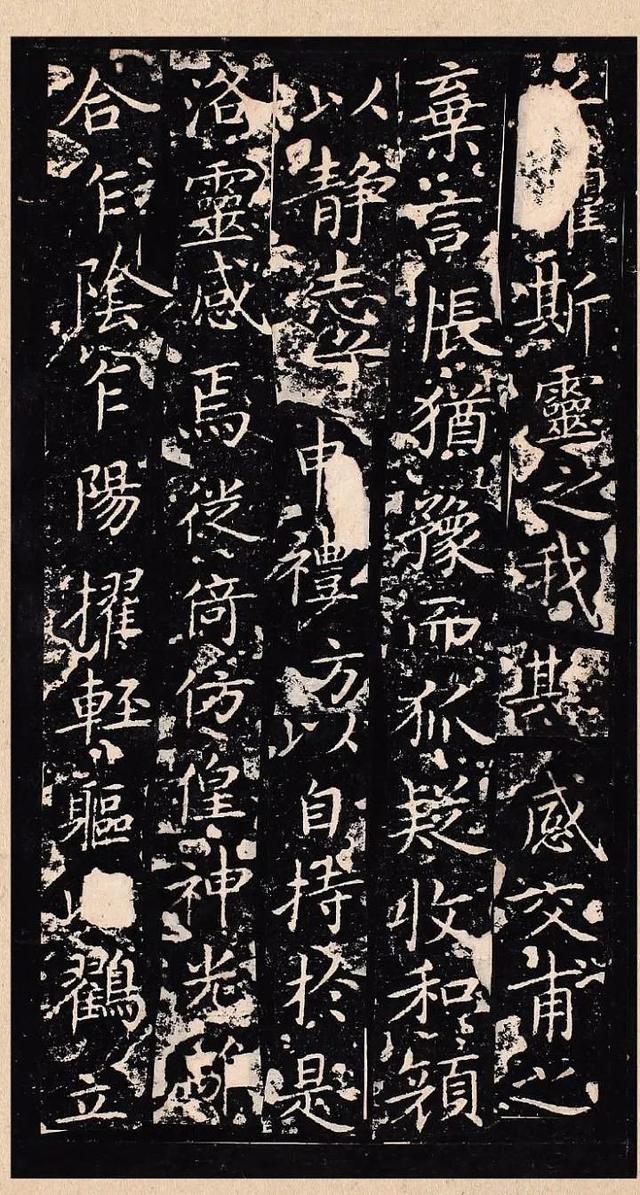 斯靈之我感交甫之
棄言悵猶豫而狐疑收和顔
以静志兮申禮方以自持於是
洛靈感焉徙倚仿偟神光
合乍陰乍陽擢輕軀鶴立